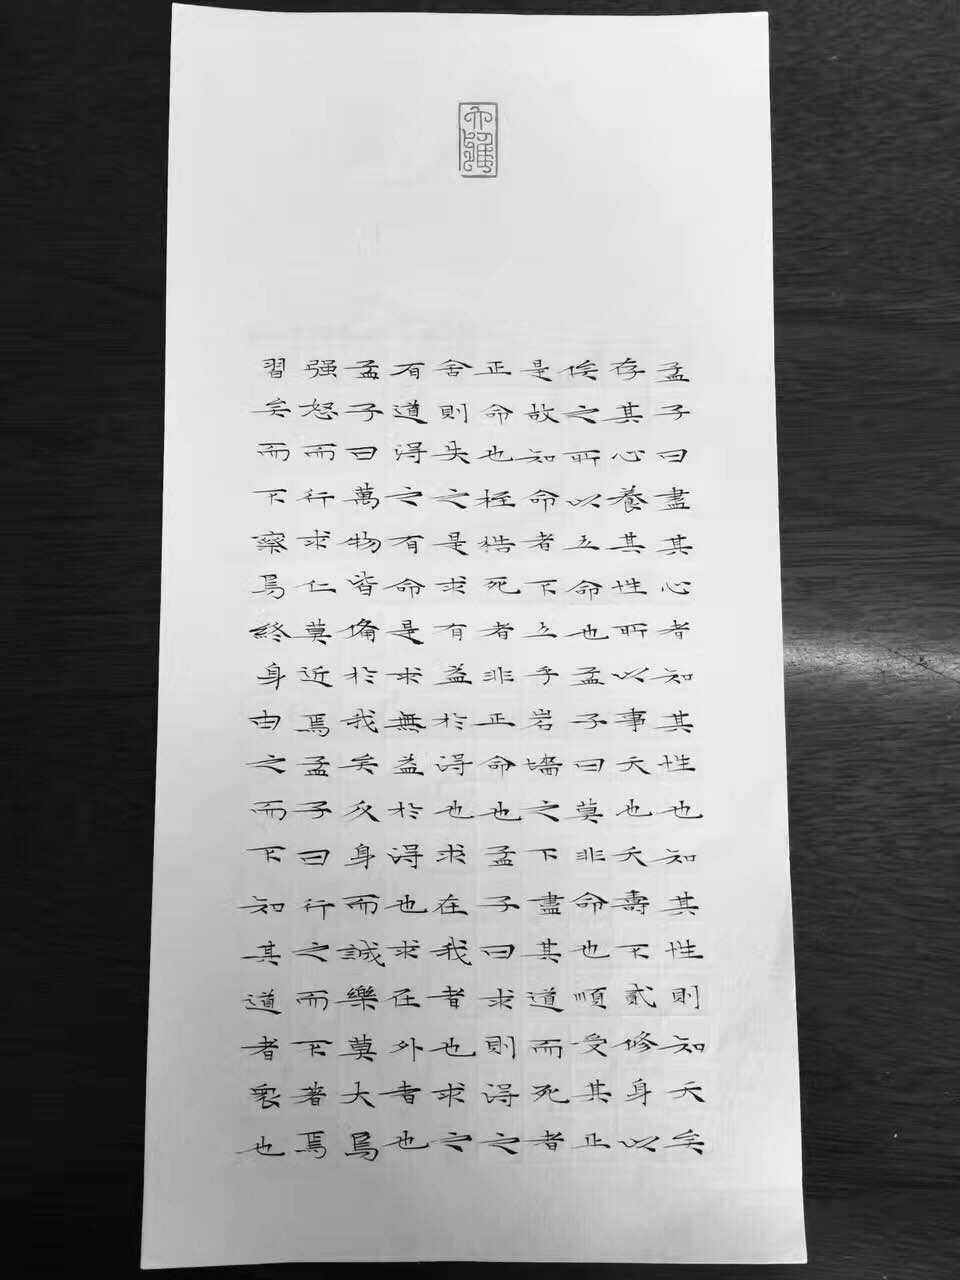 大雅
孟子曰盡其心者知其性也知其性則知天矣
存其心養其性所以事天也夭壽不貳修身以
俟之所以立命也孟子曰莫非命也順受其正
是故知命者不立乎岩墻之下盡其道而死者
正命也桎梏死者非正命也孟子曰求則得之
舍則失之是求有益於得也求在我者也求之
有道得之有命是求無益於得也求在外者也
孟子曰萬物皆備於我矣反身而誠樂莫大焉
强恕而行求仁莫近焉孟子曰行之而不著焉
習矣而不察焉終身由之而不知其道者衆也